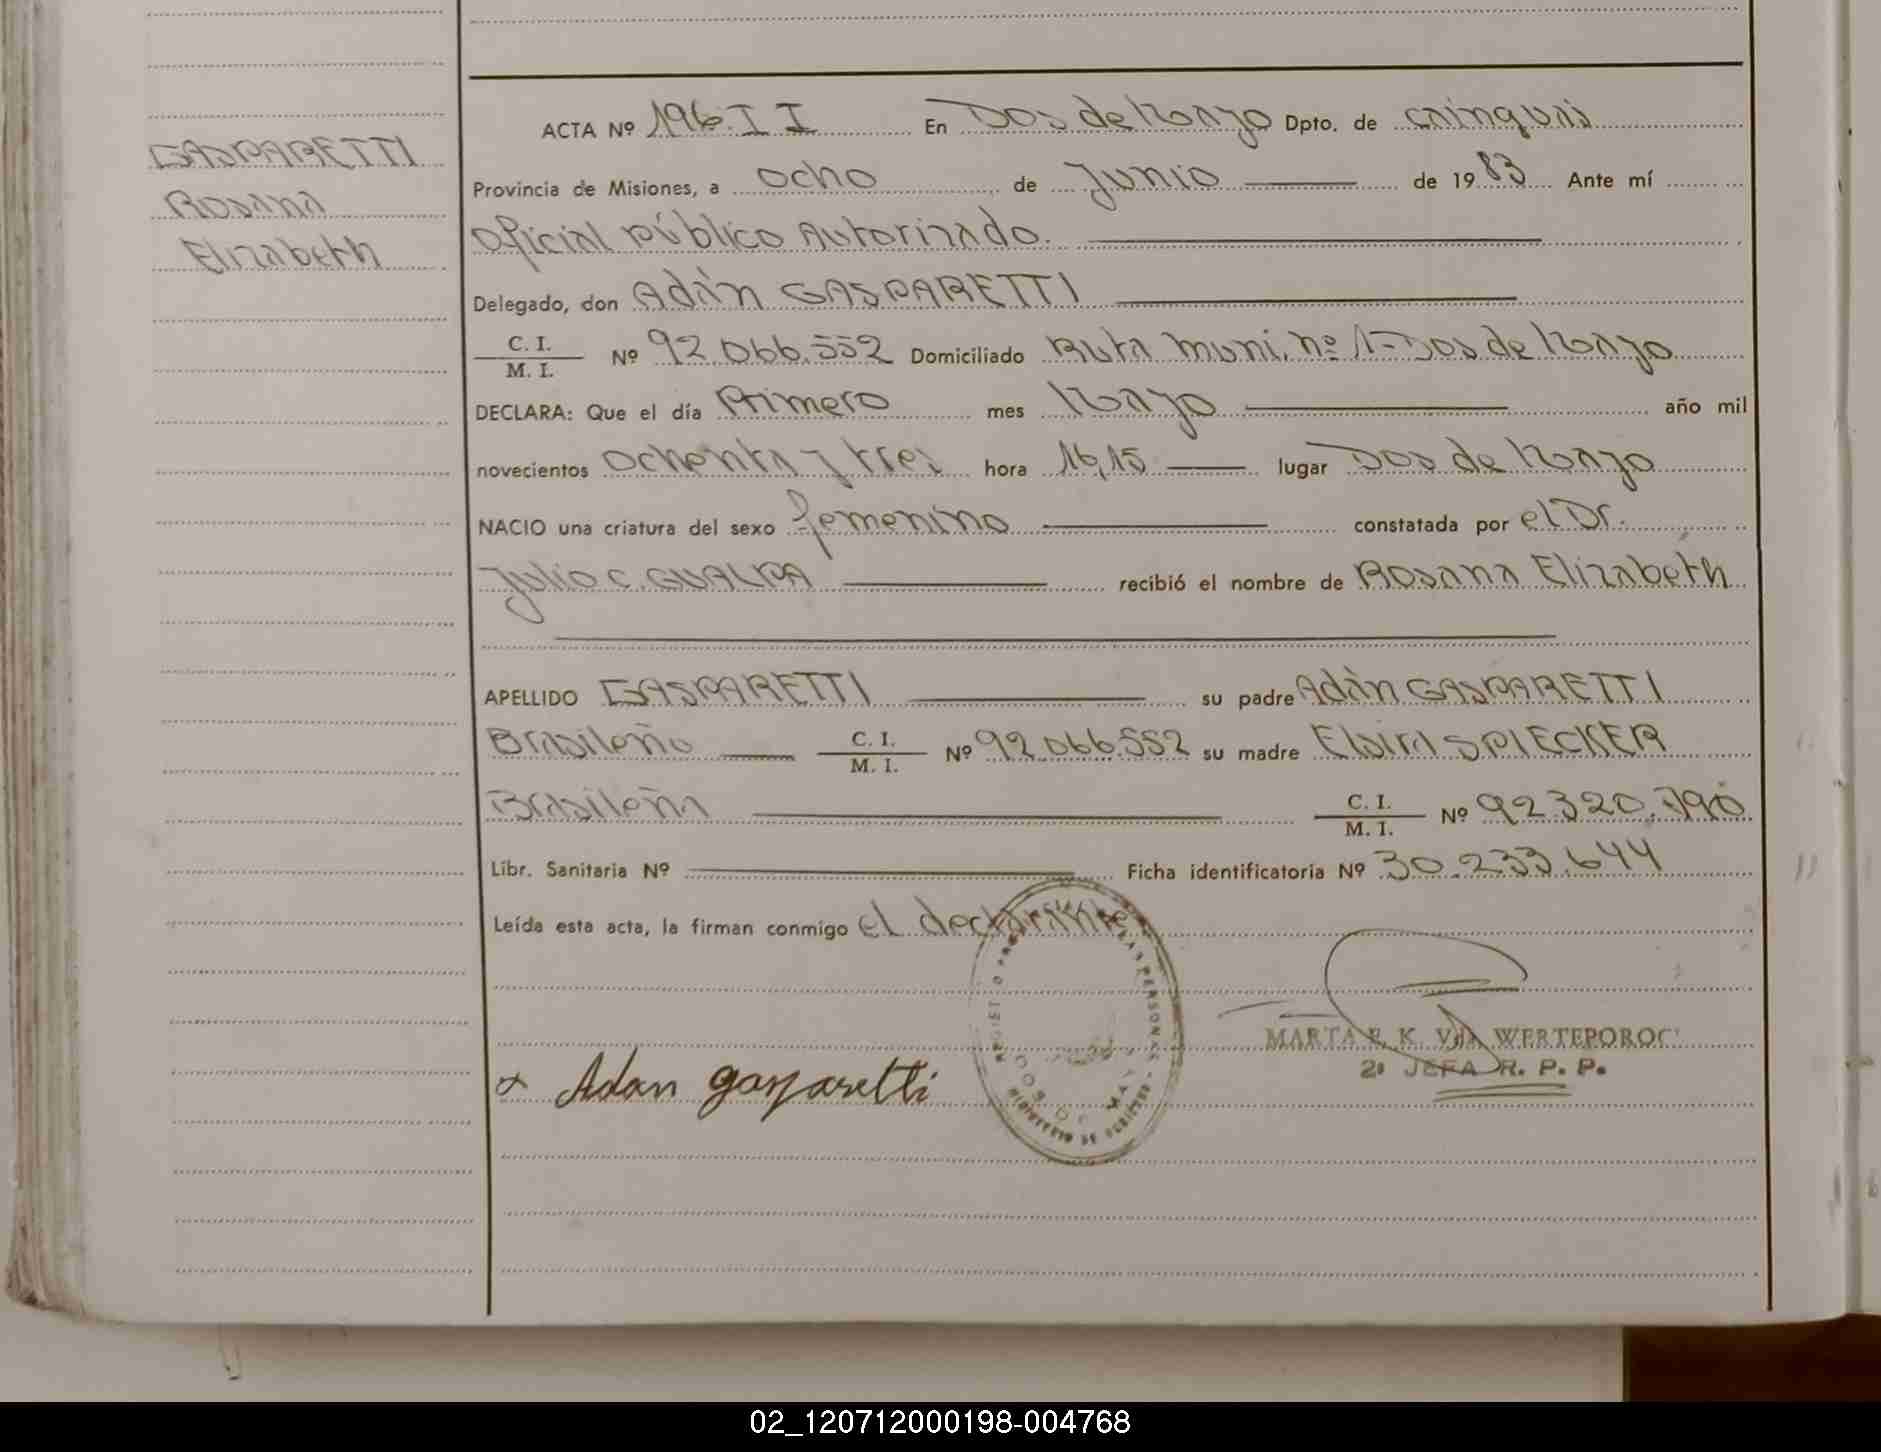 GASPARETTI
Rosana
Elizabeth
ACTA Nº 196. II En Dos de Mayo Dpto. de Cainguas
Provincia de Misiones, a ocho de Junio de 1983 Ante mí
Oficial Público Autorizado.
Delegado, don Adán GASPARETTI
C. I. M. I. Nº 92.066.552 Domiciliado Ruta Muni. nº 1-Dos de Mayo
DECLARA: Que el día Primero mes Mayo año mil
novecientos ochenta y tres hora 16,15 lugar Dos de Mayo
NACIO una criatura del sexo femenino constatada por el Dr.
Julio C. GUALPA recibió el nombre de Rosana Elizabeth
APELLIDO GASPARETTI su padre Adán GASPARETTI
Brasileño C. I. M. I. Nº 92.066.552 su madre Elvira SPIECKER
Brasileña C. I. M. I. Nº 92.320.790
Libr. Sanitaria Nº Ficha identificatoria Nº 30.233.644
Leída esta acta, la firman conmigo el declarante
MARTA E. K. Vda. WERTEPOROC
2ª JEFA R. P. P.
Adan gasparetti
02_120712000198-004768